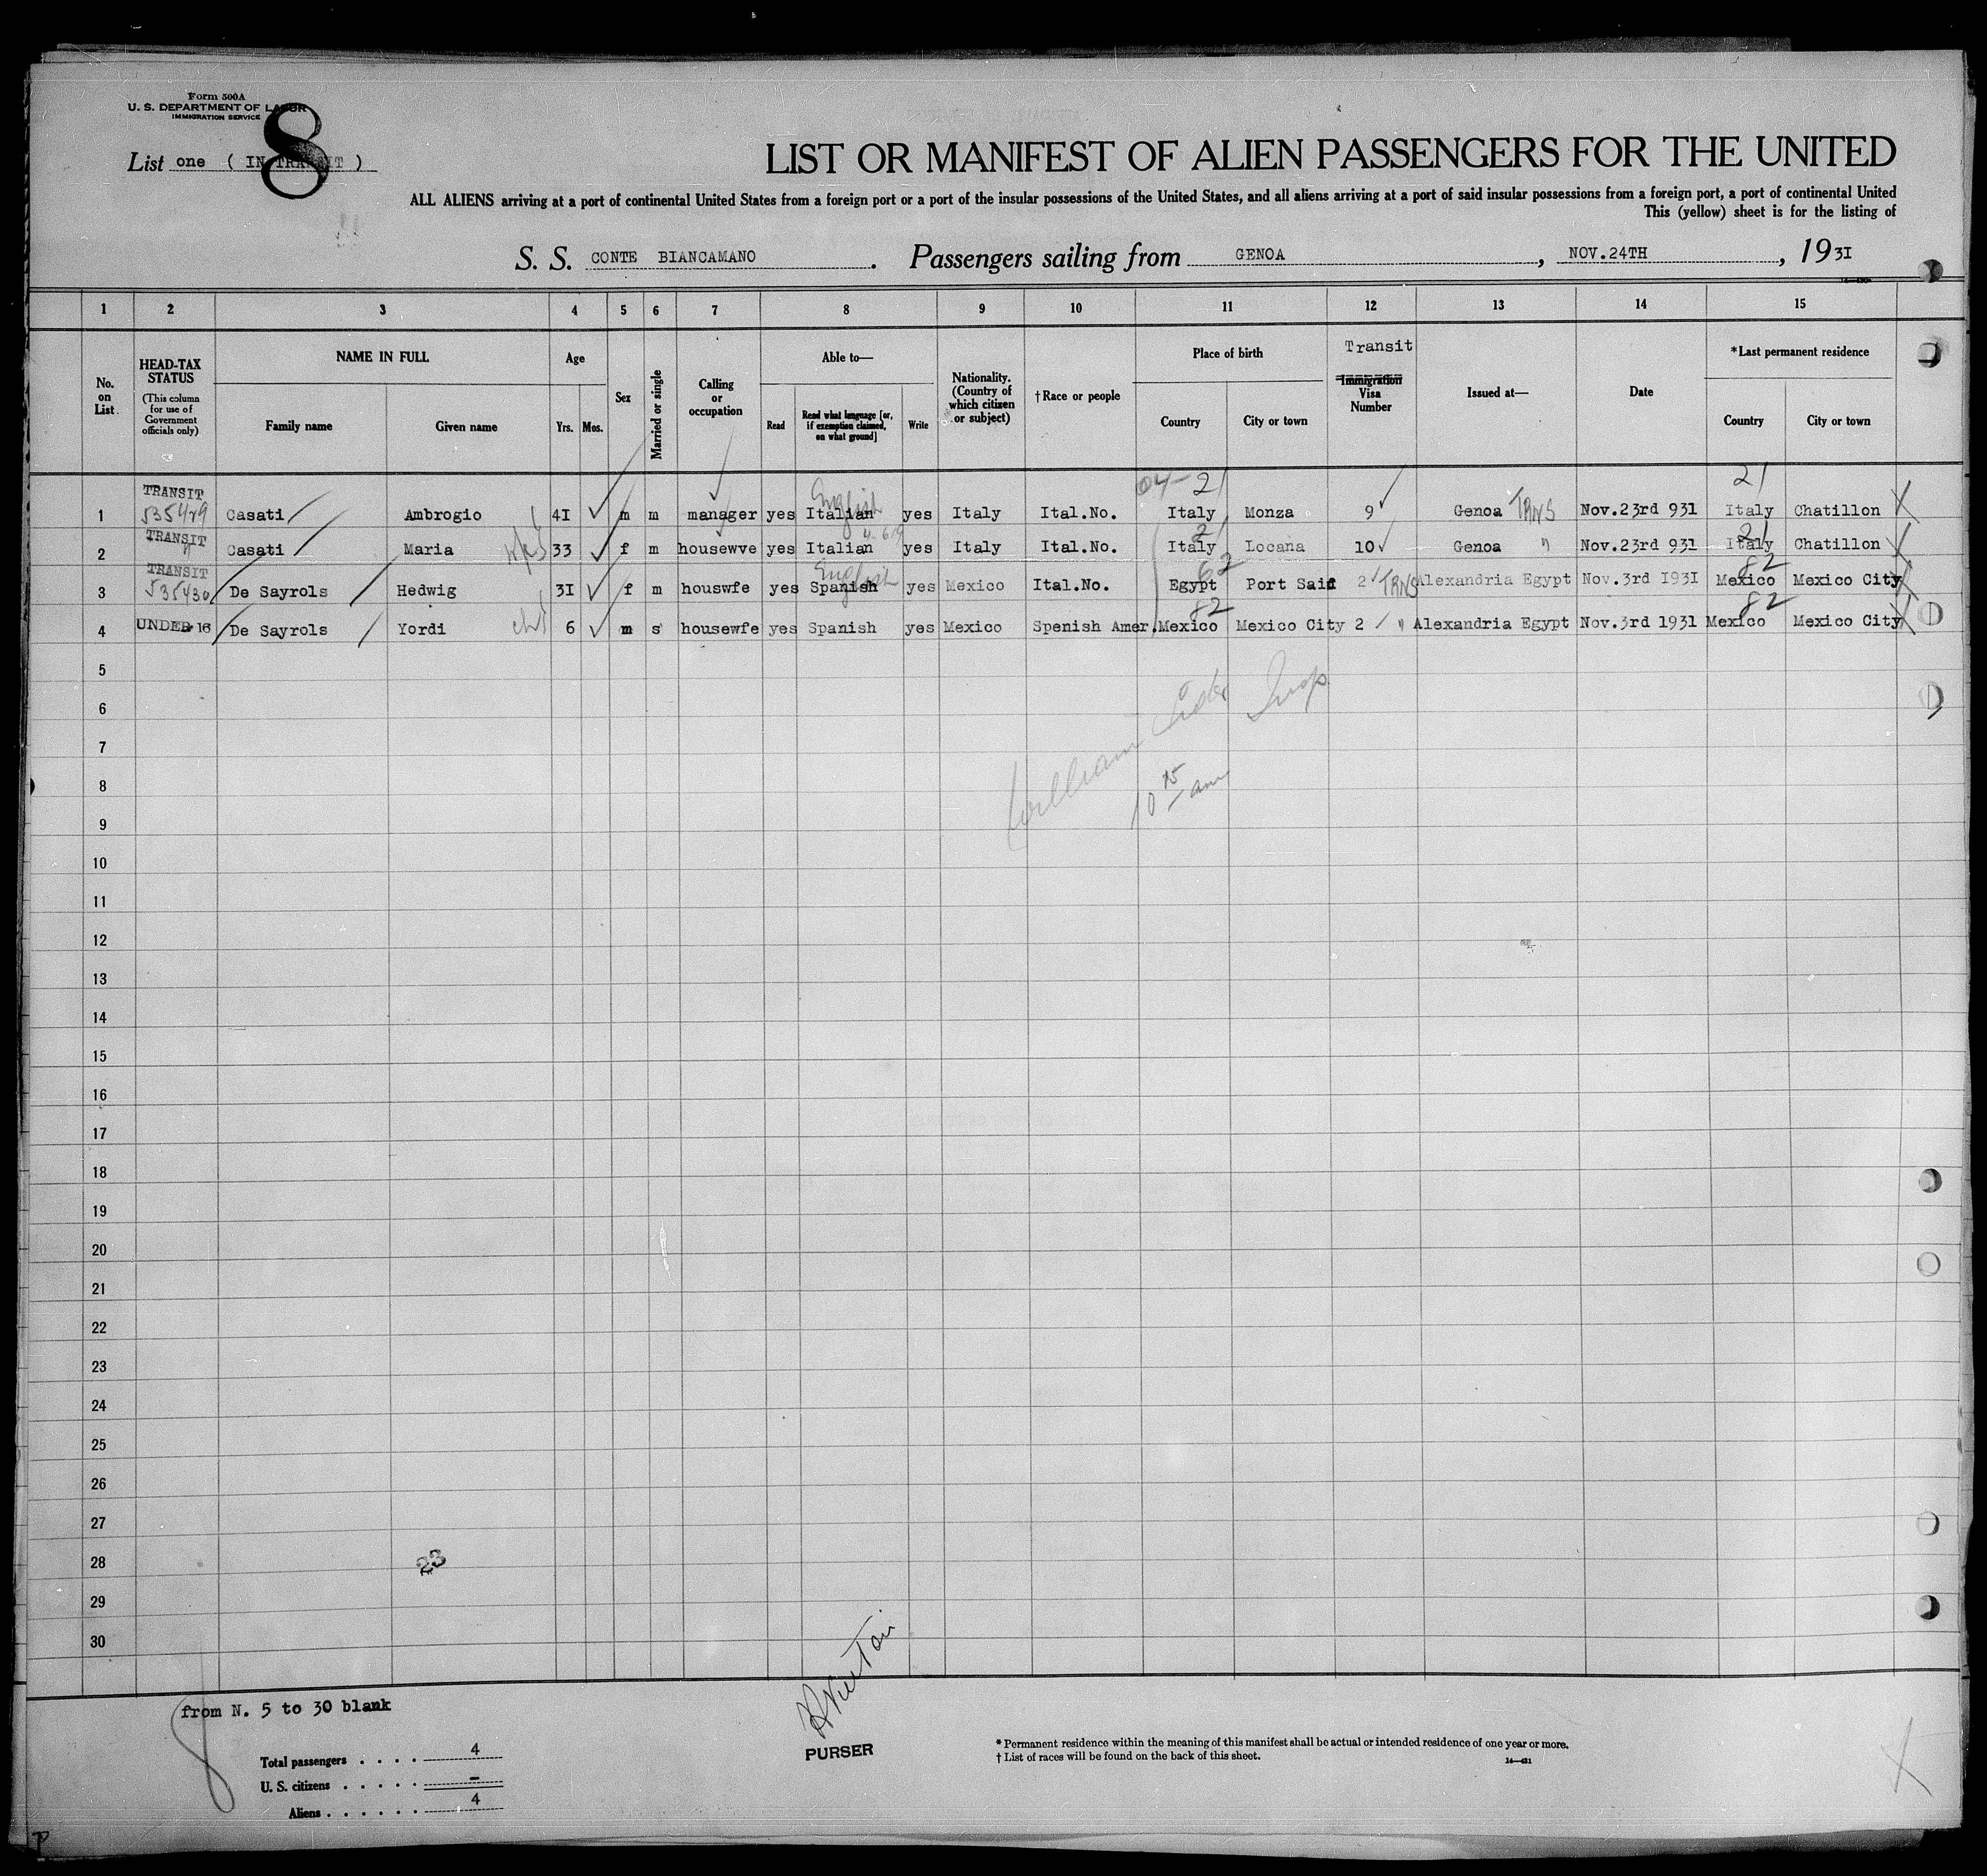 Form 500A
U. S. DEPARTMENT OF LABOR
IMMIGRATION SERVICE
8
List one ( IN TRANSIT )
LIST OR MANIFEST OF ALIEN PASSENGERS FOR THE UNITED
ALL ALIENS arriving at a port of continental United States from a foreign port or a port of the insular possessions of the United States, and all aliens arriving at a port of said insular possessions from a foreign port, a port of continental United
This (yellow) sheet is for the listing of
S. S. CONTE BIANCAMANO. Passengers sailing from GENOA, NOV.24TH, 193I
1 2 3 4 5 6 7 8 9 10 11 12 13 14 15
No. on List
HEAD-TAX STATUS
(This column for use of Government officials only)
NAME IN FULL
Family name Given name
Age
Yrs. Mos.
Sex
Married or single
Calling or occupation
Able to—
Read
Read what language [or, if exemption claimed, on what ground]
Write
Nationality. (Country of which citizen or subject)
†Race or people
Place of birth
Country City or town
Transit
Immigration Visa Number
Issued at—
Date
*Last permanent residence
Country City or town
04- 21 21
TRANSIT English
1 535429 Casati Ambrogio 4I m m manager yes Italian yes Italy Ital.No. Italy Monza 9 Genoa TRNS Nov.23rd 931 Italy Chatillon
TRANSIT 21 21
2 " Casati Maria wfe 33 f m housewve yes Italian yes Italy Ital.No. Italy Locana 10 Genoa " Nov.23rd 931 Italy Chatillon
TRANSIT English 62 82
3 535430 De Sayrols Hedwig 3I f m houswfe yes Spanish yes Mexico Ital.No. Egypt Port Said 2 TRNS Alexandria Egypt Nov.3rd I93I Mexico Mexico City
82 82
4 UNDER 16 De Sayrols Yordi chd 6 m s housewfe yes Spanish yes Mexico Spenish Amer. Mexico Mexico City 2 " Alexandria Egypt Nov.3rd 1931 Mexico Mexico City
5
6
7
8
9
10
11
12
13
14
15
16
17
18
19
20
21
22
23
24
25
26
27
28
29
30
William Insp
10 15 am
23
from N. 5 to 30 blank
Total passengers . . . . 4
U. S. citizens . . . . . –
Aliens . . . . . . 4
PURSER
* Permanent residence within the meaning of this manifest shall be actual or intended residence of one year or more.
† List of races will be found on the back of this sheet.
14—421